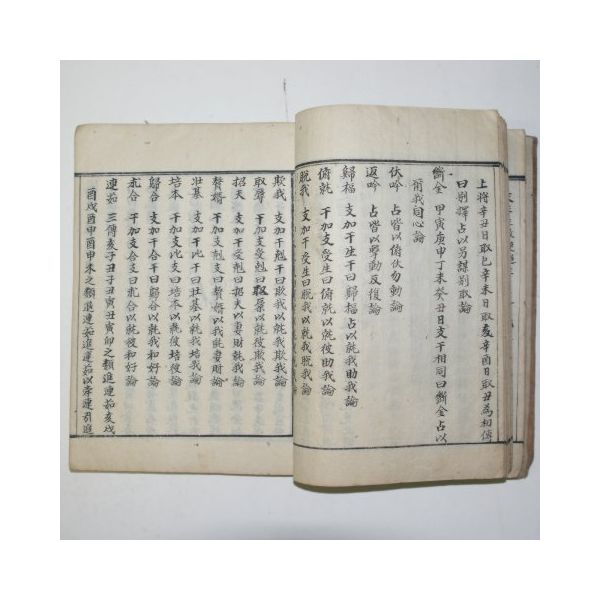 上將辛丑日取巳辛未日取亥辛酉日取丑為初傳
曰別擇占以另謀別取論
斷金 甲寅庚申丁未癸丑日支干相同曰斷金占以
同心論
伏吟 占皆以俯伏勿動論
返吟 占皆以擧動反復論
歸福 支加干生干曰歸福占以彼我助我論
俯就 干加支受生曰俯就以就彼助我論
脫我 支加干受生曰脫我以就我脫我論
欺我 支加干剋干曰欺我以就我欺我論
取辱 干加支受剋曰取辱以就彼欺我論
招夫 支加干受剋曰招夫以妻財就我論
贅婿 干加支剋支曰贅婿以我就妻財論
壯基 支加干比干曰壯基以就我培我論
培本 干加支比支曰培本以就彼培彼論
歸合 支加干合干曰歸合以就我和好論
求合 干加支合支曰求合以就彼和好論
連茹 三傳亥子丑子丑寅丑寅卯之類進連茹亥戌
酉戌酉申酉申未之類退連茹進連茹以牽連引進